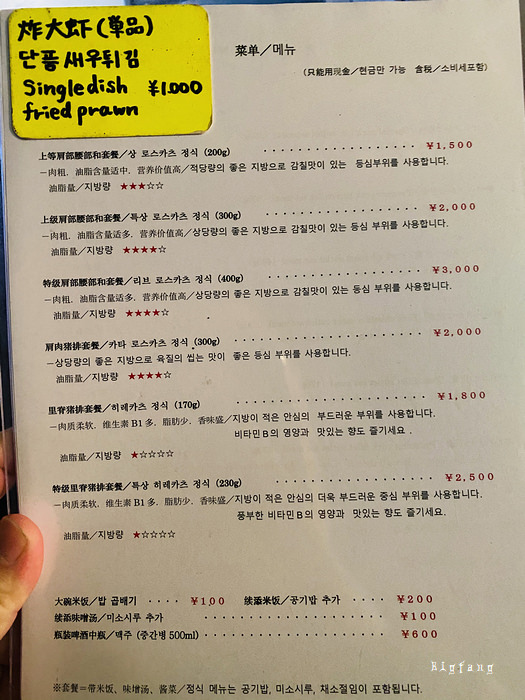 炸大虾(单品)
단품 새우튀김
Single dish ¥1.000
fried prawn
菜单／메뉴
(只能用现金／현금만 가능 含税／소비세포함)
上等肩部腰部和套餐／상 로스카츠 정식 (200g) ･･････････････････ ¥1,500
－肉粗．油脂含量适中．营养价值高／적당량의 좋은 지방으로 감칠맛이 있는 등심부위를 사용합니다.
油脂量／지방량 ★★★☆☆
上级肩部腰部和套餐／특상 로스카츠 정식 (300g) ･･････････････････ ¥2,000
－肉粗．油脂含量适多．营养价值高／상당량의 좋은 지방으로 감칠맛이 있는 등심 부위를 사용합니다.
油脂量／지방량 ★★★★☆
特级肩部腰部和套餐／리브 로스카츠 정식 (400g) ･･････････････････ ¥3,000
－肉粗．油脂含量适多．营养价值高／상당량의 좋은 지방으로 감칠맛이 있는 등심 부위를 사용합니다.
油脂量／지방량 ★★★★☆
肩肉猪排套餐／카타 로스카츠 정식 (300g) ･･････････････････ ¥2,000
－상당량의 좋은 지방으로 육질의 씹는 맛이 좋은 등심 부위를 사용합니다.
油脂量／지방량 ★★★★☆
里脊猪排套餐／히레카츠 정식 (170g) ･･････････････････ ¥1,800
－肉质柔软．维生素 B1 多．脂肪少．香味盛／지방이 적은 안심의 부드러운 부위를 사용합니다.
비타민 B 의 영양과 맛있는 향도 즐기세요 .
油脂量／지방량 ★☆☆☆☆
特级里脊猪排套餐／특상 히레카츠 정식 (230g) ･･････････････････ ¥2,500
－肉质柔软．维生素 B1 多．脂肪少．香味盛／지방이 적은 안심의 더욱 부드러운 중심 부위를 사용합니다.
풍부한 비타민 B 의 영양과 맛있는 향도 즐기세요.
油脂量／지방량 ★☆☆☆☆
大碗米饭／밥 곱배기 ････ ¥100 续添米饭／공기밥 추가 ････ ¥200
续添味噌汤／미소시루 추가 ･･････････････････ ¥100
瓶装啤酒中瓶／맥주 (중간병 500ml) ･･････････････････ ¥600
※套餐＝带米饭、味噌汤、酱菜／정식 메뉴는 공기밥, 미소시루, 채소절임이 포함됩니다.
Bigfang